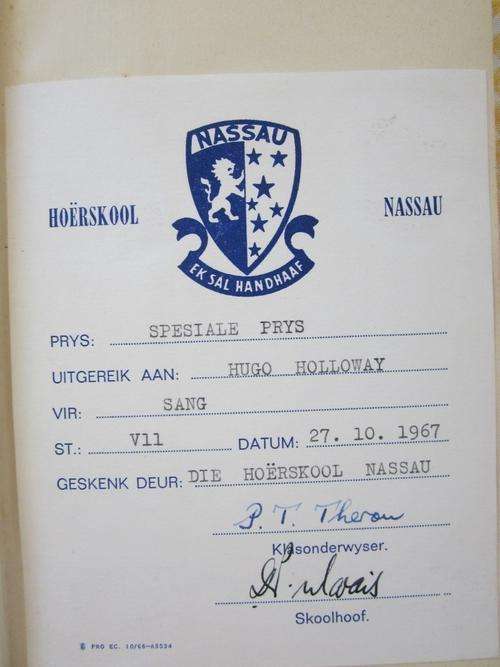 NASSAU
HOËRSKOOL NASSAU
EK SAL HANDHAAF
PRYS: SPESIALE PRYS
UITGEREIK AAN: HUGO HOLLOWAY
VIR: SANG
ST.: V11 DATUM: 27. 10. 1967
GESKENK DEUR: DIE HOËRSKOOL NASSAU
P. T. Theron
Klasonderwyser.
Skoolhoof.
PRO EC. 10/66-A5534